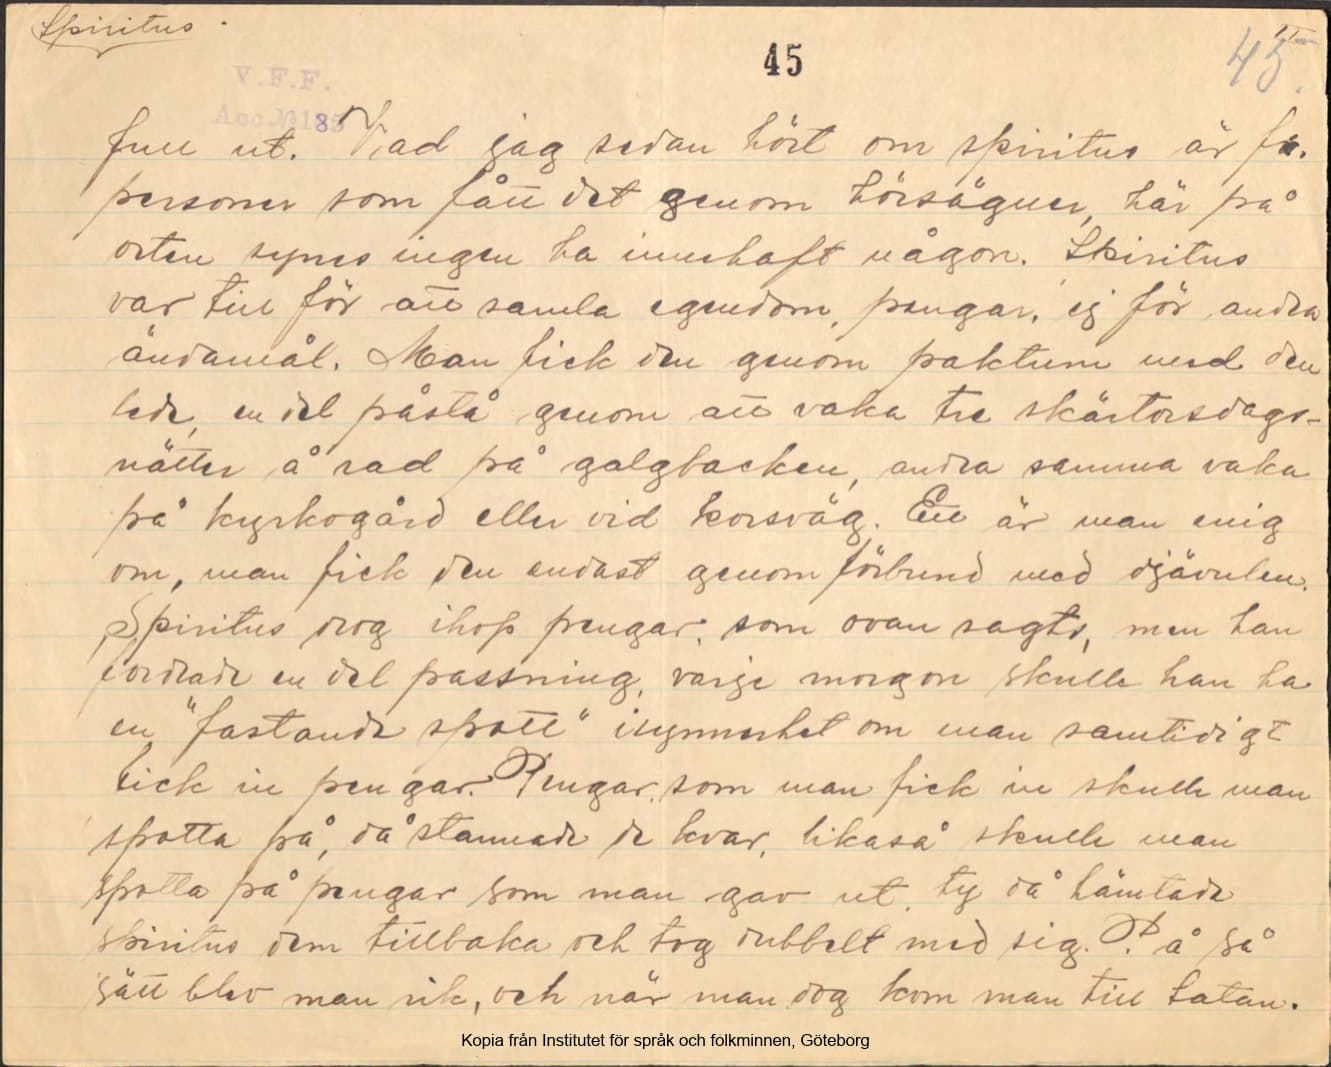 Spiritus
45
45.
V.F.F.
Acc. № 185
full ut. Vad jag sedan hört om spiritus är från
personer som fått det genom hörsägner, här på
orten synes ingen ha innehaft någon. Spiritus
var till för att samla egendom, pengar, ej för andra
ändamål. Man fick den genom paktum med den
lede, en del påstå genom att vaka tre skärtorsdags-
nätter å rad på galgbacken, andra samma vaka
på kyrkogård eller vid korsväg. Ett är man enig
om, man fick den endast genom förbund med djävulen.
Spiritus drog ihop pengar, som ovan sagts, men han
fordrade en del passning, varje morgon skulle han ha
en "fastande spott" isynnerhet om man samtidigt
fick in pengar. Pengar, som man fick in skulle man
spotta på, då stannade de kvar, likaså skulle man
spotta på pengar som man gav ut, ty då hämtade
spiritus dem tillbaka och tog dubbelt med sig. På så
sätt blev man rik, och när man dog kom man till Satan.
Kopia från Institutet för språk och folkminnen, Göteborg